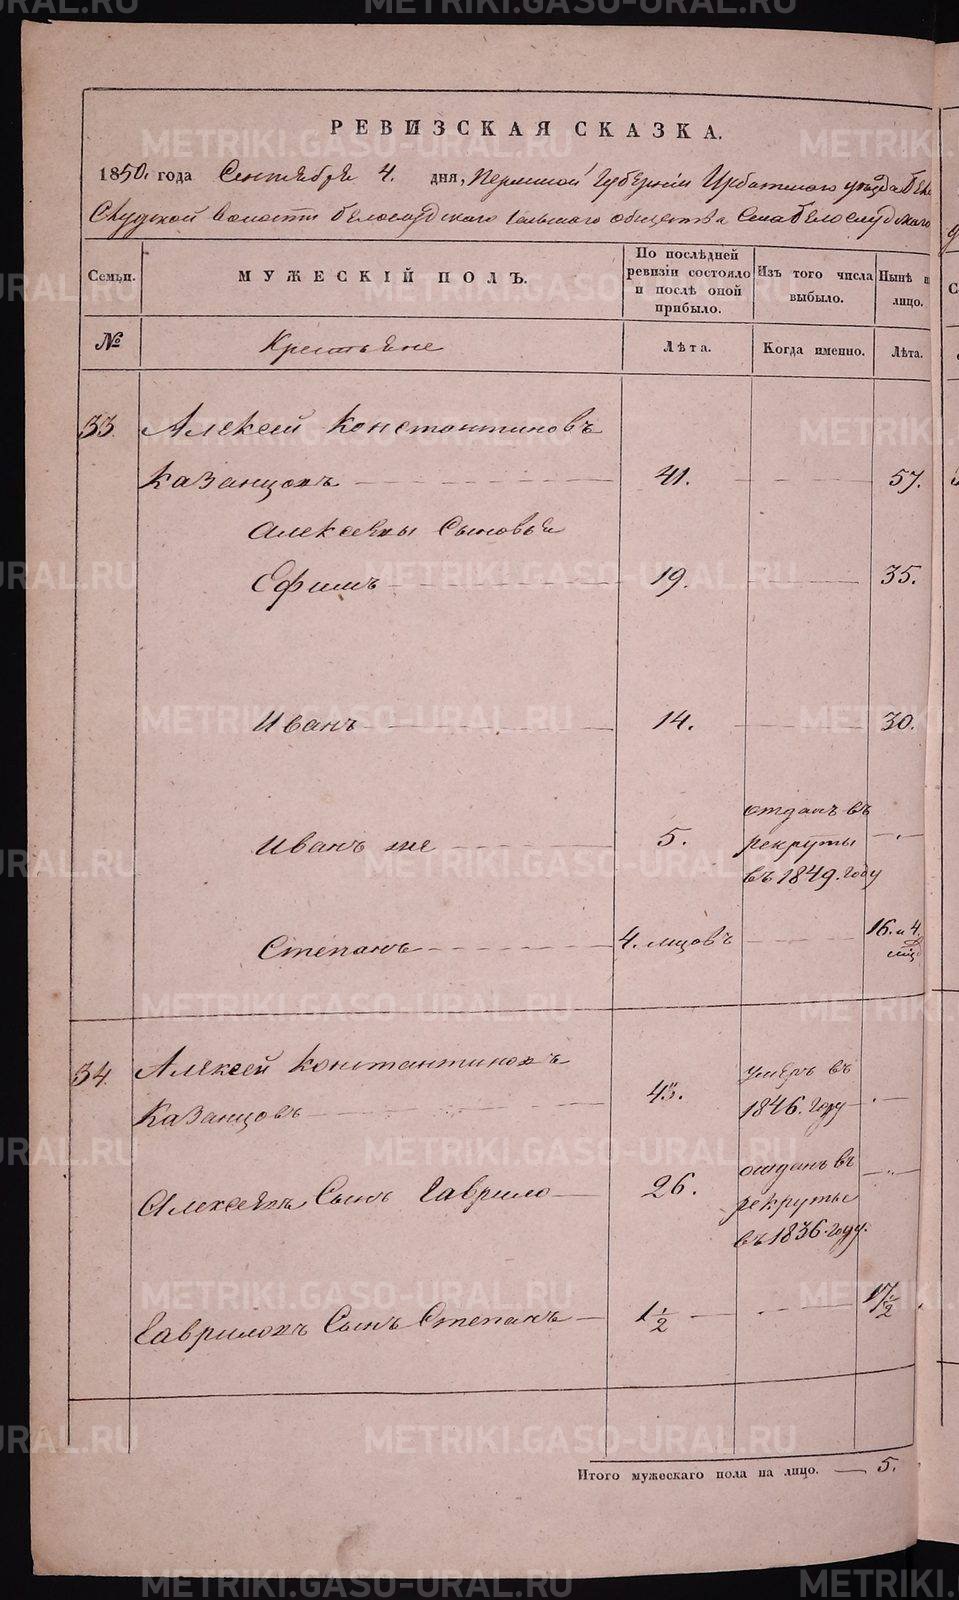 РЕВИЗСКАЯ СКАЗКА.
1850. года Сентября 4. дня, Пермской Губернии Ирбитского уезда Бело
Слудской волости белослудского сельского общества Села Белослудского
Семьи.
МУЖЕСКІЙ ПОЛЪ.
По послѣдней
ревизіи состояло
и послѣ оной
прибыло.
Изъ того числа
выбыло.
Нынѣ н
лицо.
№
Крестьяне
Лѣта.
Когда именно.
Лѣта.
33. Алексей Константиновъ
Казанцовъ 41. 57.
Алексеевы Сыновья
Ефимъ 19. 35.
Иванъ 14. 30.
Иванъ же 5. отданъ въ
рекруты
въ 1849. году
Степанъ 4. мцовъ 16. и 4.
мц
34. Алексей Константиновъ
Казанцовъ 43. умеръ въ
1846. году
Алексеевъ Сынъ Гаврило 26. отданъ въ
рекруты
въ 1836. году.
Гавриловъ Сынъ Степанъ 1 1/2 17 1/2
Итого мужескаго пола на лицо. 5.
METRIKI.GASO-URAL.RU